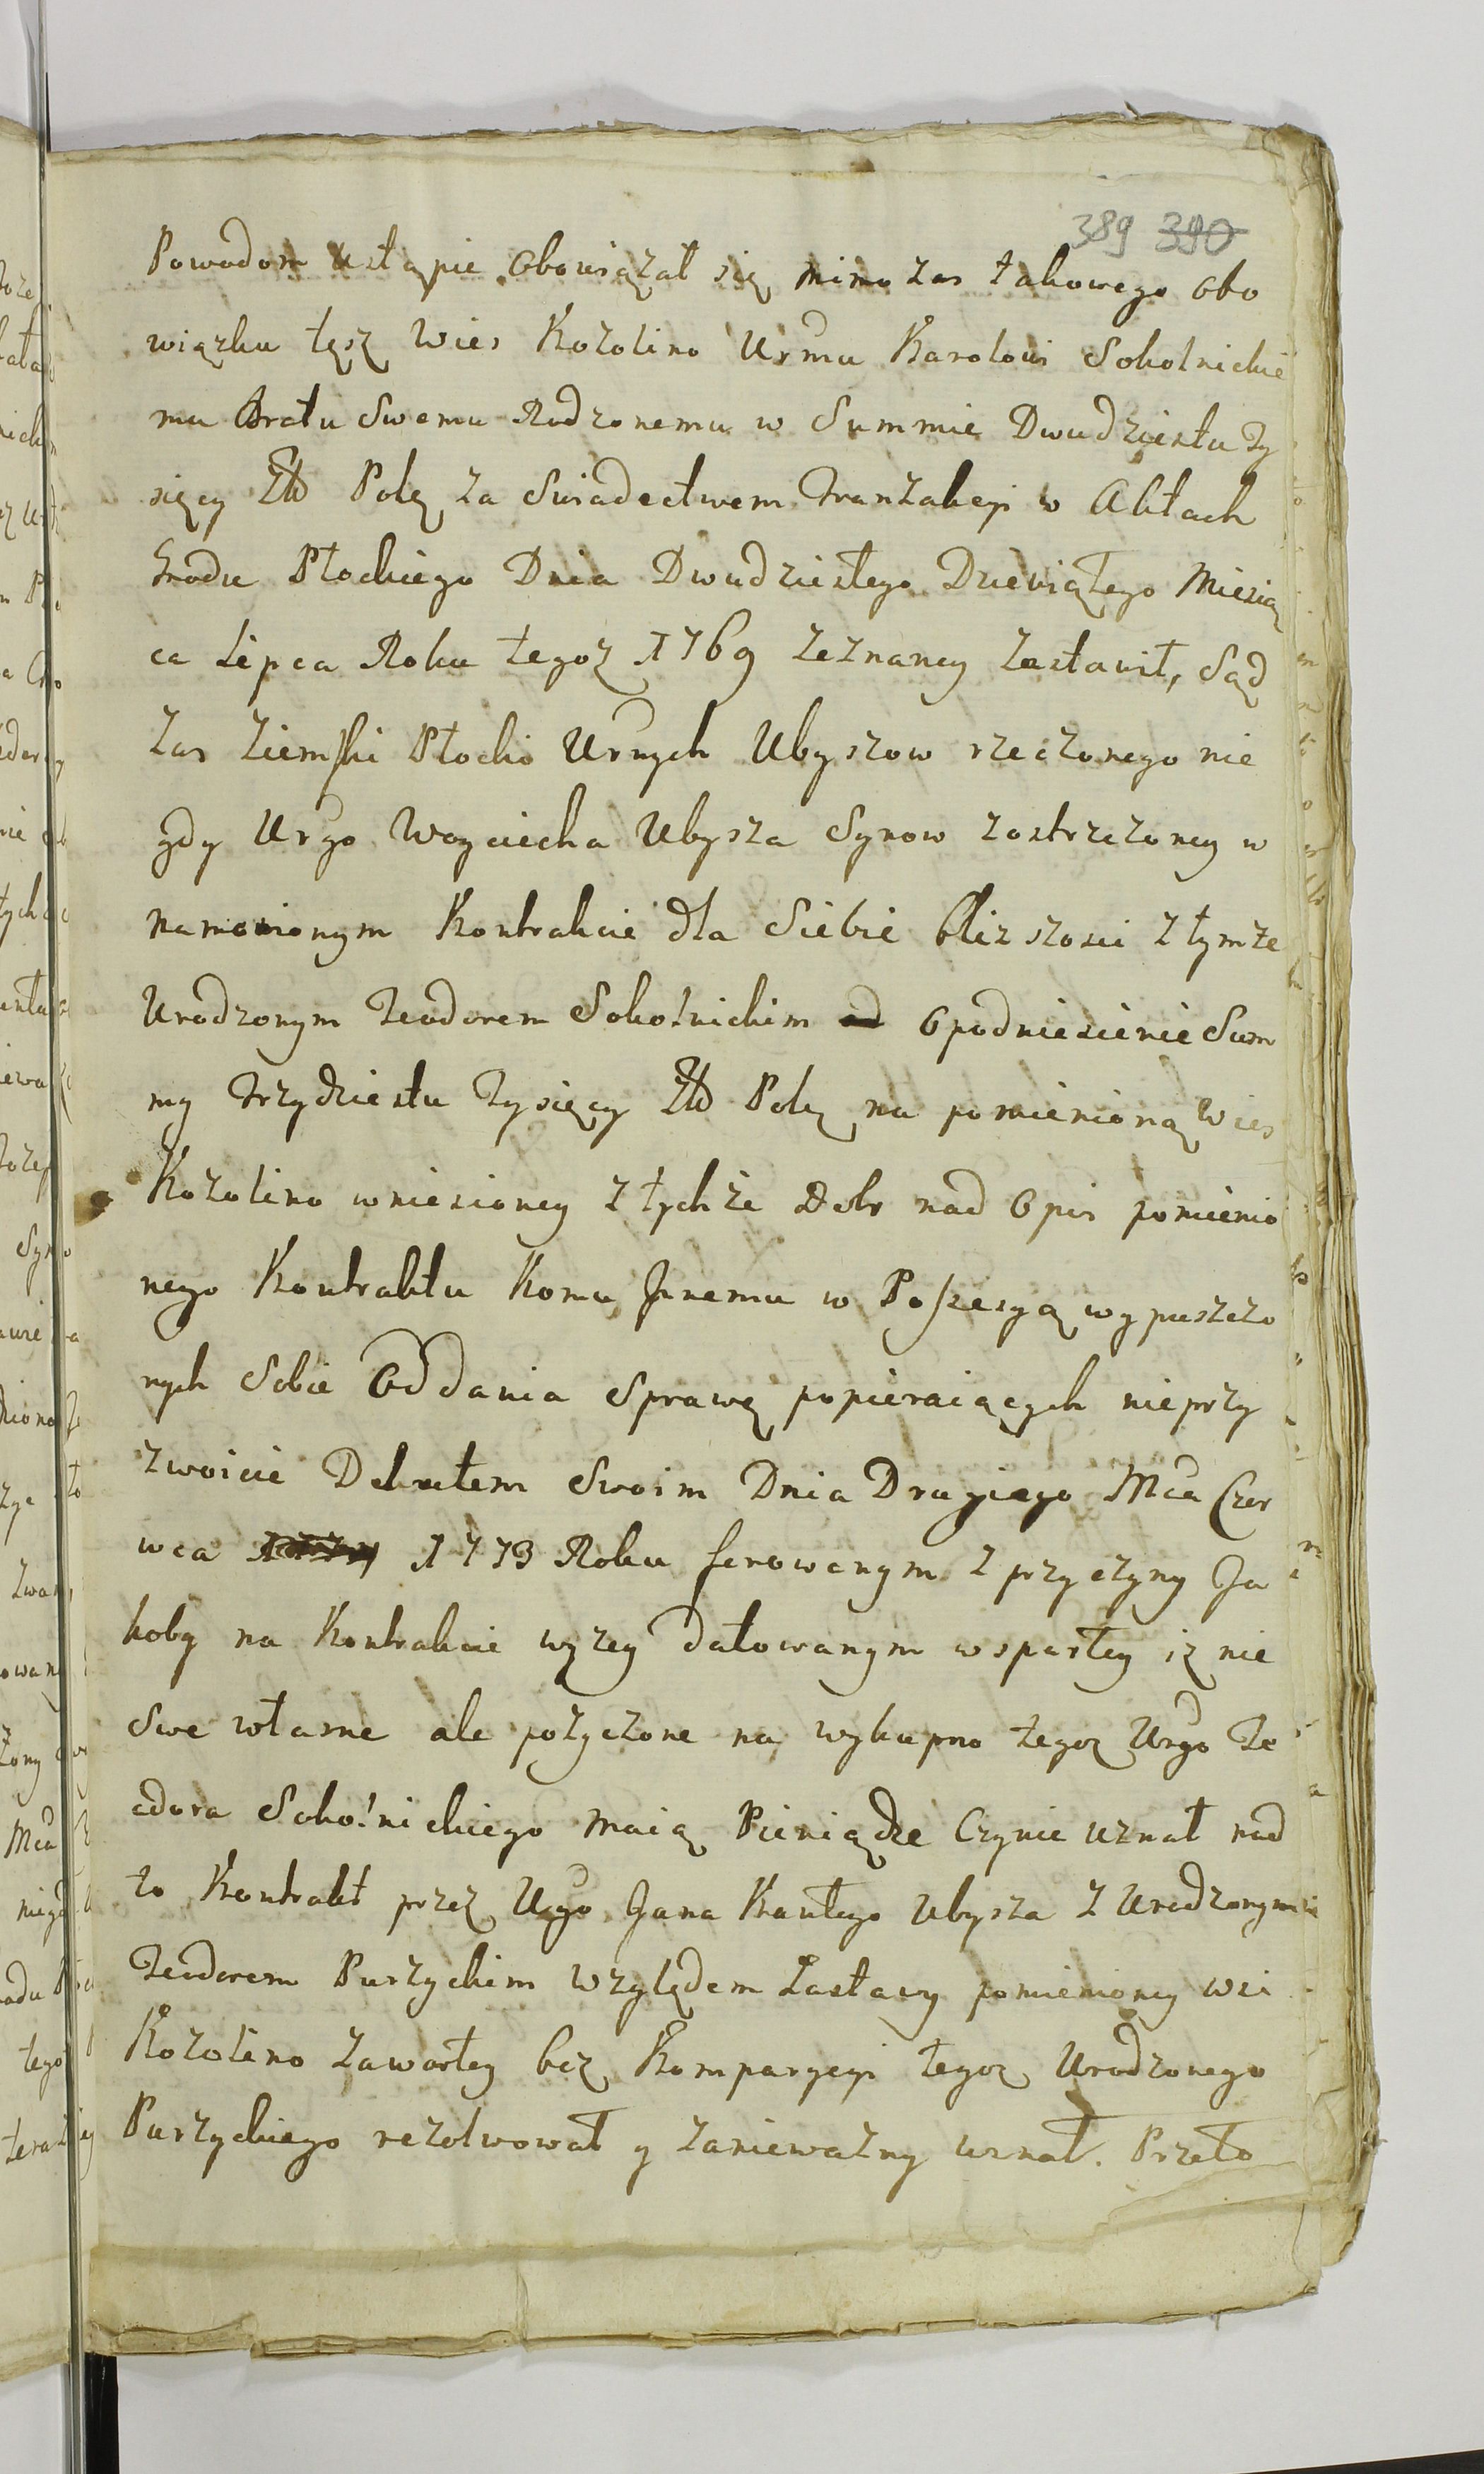 389 390
Powodom ustąpic obowiązał się mimo zas takowego obo
wiązku tęsz Wies Kozolino Urmu Karolowi Sokolnickie
mu Bratu Swemu Rodzonemu w Summie Dwudziestu Ty
sięcy Złł Polę za Swiadectwem Tranzakcyi w Aktach
Grodu Płockiego Dnia Dwudziestego Dziewiątego Miesią
ca Lipca Roku tegoz 1769 zeznaney zastawił, Sąd
zas Ziemski Płocki Urnych Ubyszow rzeczonego nie
gdy Urgo Woyciecha Ubysza Synow zostrzezoney w
namienionym Kontrakcie dla Siebie blizszosci z tymze
Urodzonym Teodorem Sokolnickim od o podniesienie Sum
my Trzydziestu Tysięcy Złł Polę na pomienioną Wies
Kozolino wniesioney z tychze Dobr nad Opis pomienio
nego Kontraktu Komu Jnemu w Possesyą wypuszczo
nych Sobie Oddania Sprawę popieraiących nieprzy
zwoicie Dekretem Swoim Dnia Drugiego Mca Czer
wca 1773 Roku ferowanym z przyczyny Ja
koby na Kontrakcie wyzey datowanym wspartey iz nie
Swe własne ale pozyczone na wykupno tegoz Urgo Te
odora Sokolnickiego maią Pieniądze Czynic uznał nad
to Kontrakt przez Urgo Jana Kantego Ubysza z Urodzonym
Teodorem Purzyckim względem Zastawy pomienioney wsi
Kozolino zawartey bez Komparycyi tegoz Urodzonego
Purzyckiego rezolwował y zaniewazny uznał. Przeto